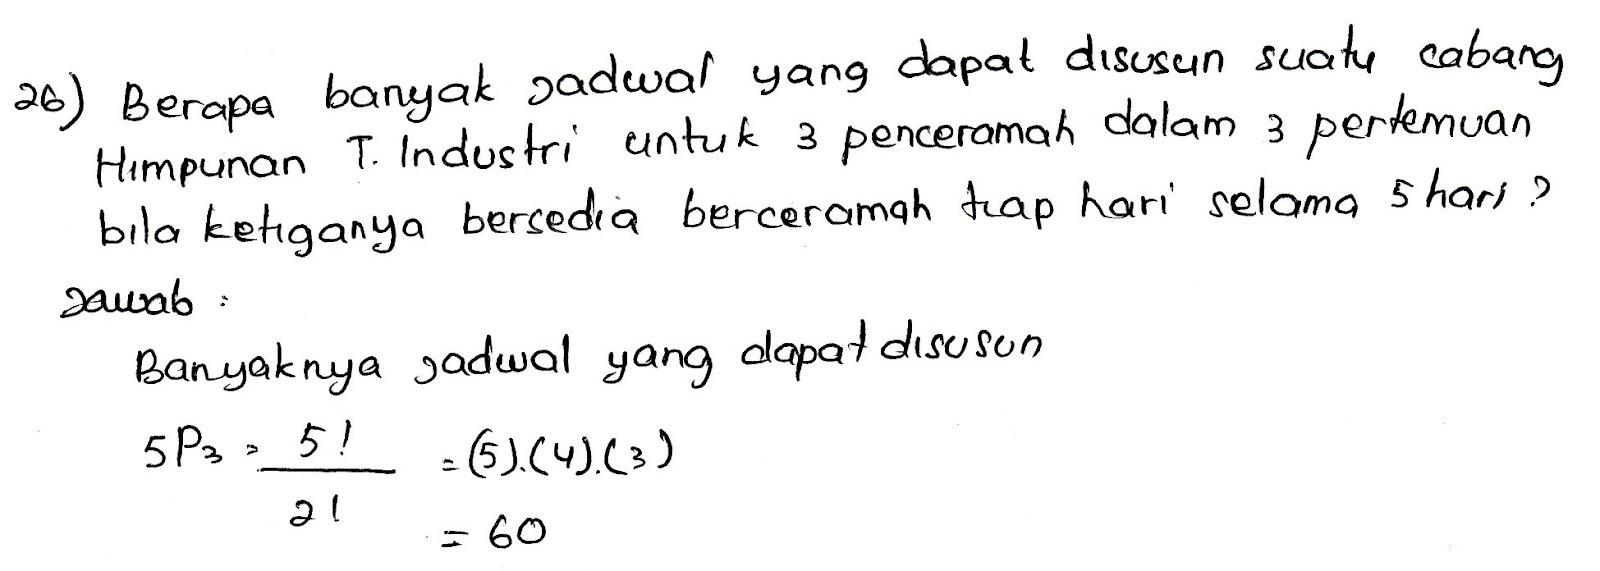 26) Berapa banyak jadwal yang dapat disusun suatu cabang
Himpunan T. Industri untuk 3 penceramah dalam 3 pertemuan
bila ketiganya bersedia berceramah tiap hari selama 5 hari ?
Jawab :
Banyaknya jadwal yang dapat disusun
5P3 = 5! / 2! = (5).(4).(3)
= 60